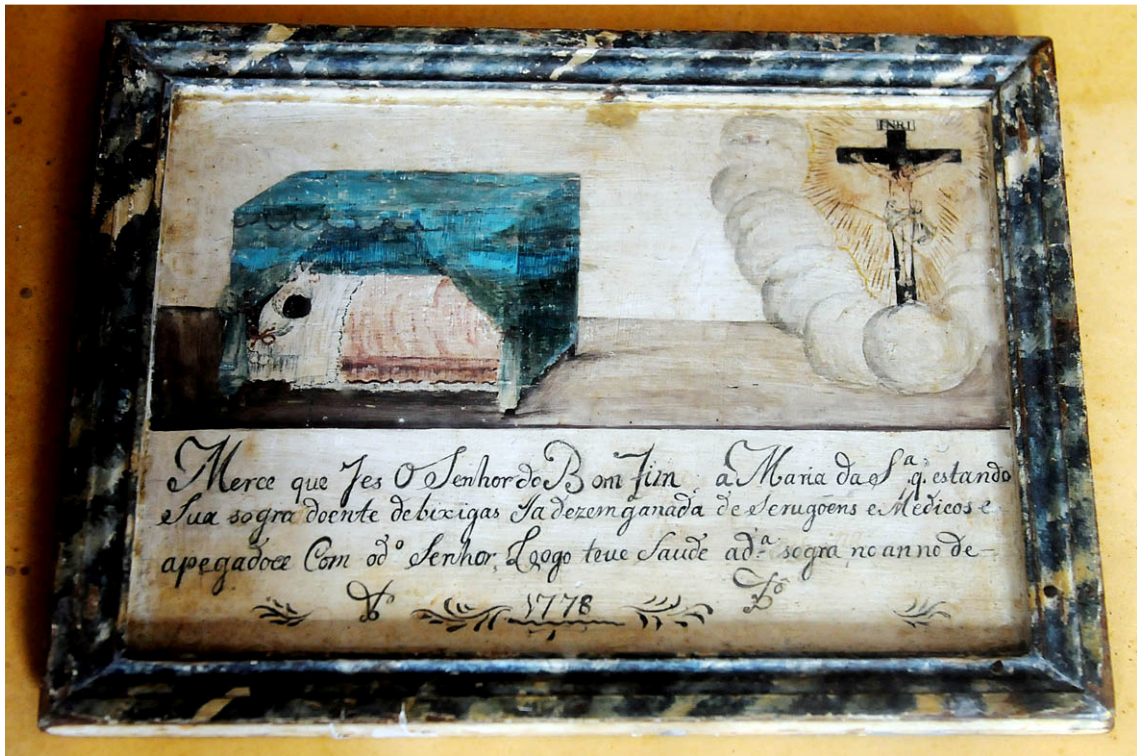 INRI
Merce que Fes O Senhor do Bom Fim, a Maria da S.ª q. estando
Sua sogra doente de bixigas Ja dezemganada de Serugoens e Medicos e
apegadoce Com o d.º Senhor, Logo teue Saude a d.ª sogra, no anno de
1778